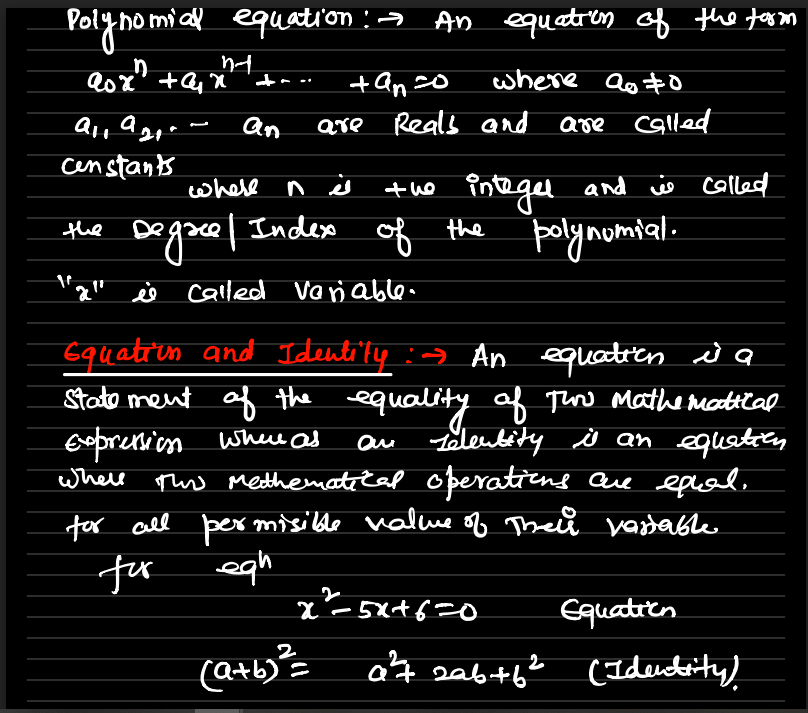 Polynomial equation :→ An equation of the form
a₀xⁿ + a₁xⁿ⁻¹ + - - .. + aₙ = 0 where a₀ ≠ 0
a₁, a₂, . - aₙ are Reals and are called
constants
where n is +ve integer and is called
the Degree | Index of the polynomial.
"x" is called variable.
Equation and Identity :→ An equation is a
Statement of the equality of Two Mathematical
Expression whereas an Identity is an equation
where Two Mathematical operations are equal.
for all permisible value of Their variable
for eqⁿ
x² - 5x + 6 = 0 Equation
(a+b)² = a² + 2ab + b² (Identity)